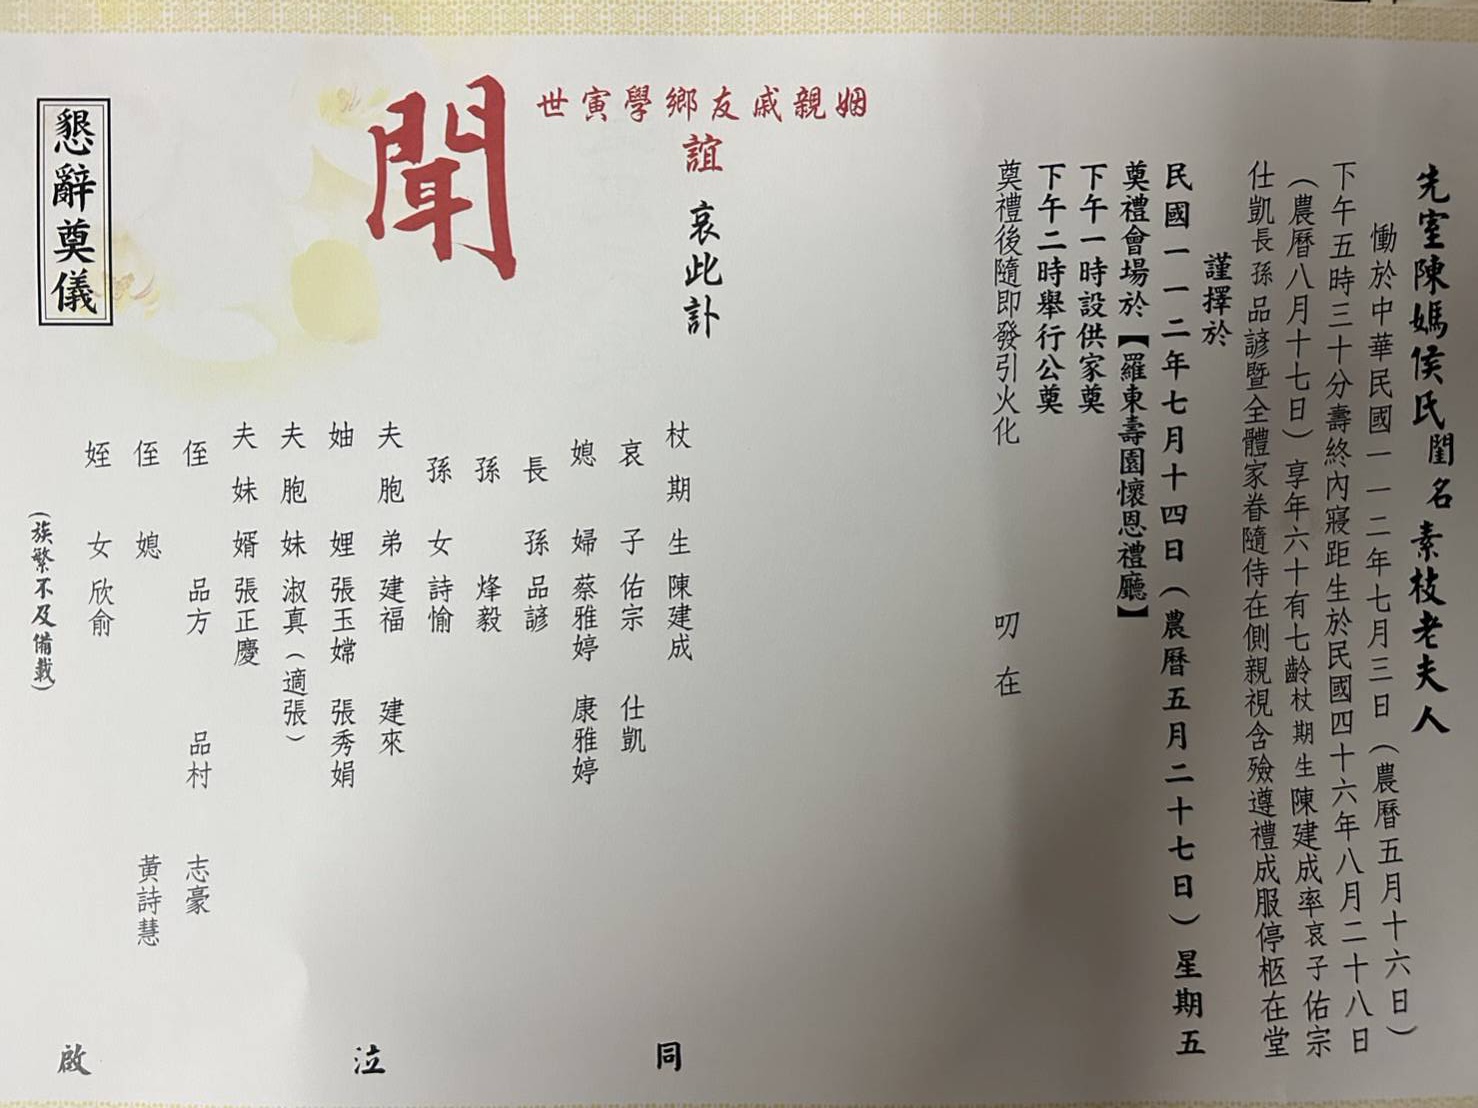 先室陳媽侯氏閨名素枝老夫人
慟於中華民國一一二年七月三日（農曆五月十六日）
下午五時三十分壽終內寢距生於民國四十六年八月二十八日
（農曆八月十七日）享年六十有七齡杖期生陳建成率哀子佑宗
仕凱長孫品諺暨全體家眷隨侍在側親視含殮遵禮成服停柩在堂
謹擇於
民國一一二年七月十四日（農曆五月二十七日）星期五
奠禮會場於【羅東壽園懷恩禮廳】
下午一時設供家奠
下午二時舉行公奠
奠禮後隨即發引火化
叨在
姻親戚友鄉學寅世
誼 哀此訃
聞
杖期生 陳建成
哀子 佑宗 仕凱
媳婦 蔡雅婷 康雅婷
長孫 品諺
孫 烽毅
孫女 詩愉
夫胞弟 建福 建來
妯娌 張玉嫦 張秀娟
夫胞妹 淑真（適張）
夫妹婿 張正慶
侄 品方 品村 志豪
侄媳 黃詩慧
姪女 欣俞
（族繁不及備載）
同泣啟
懇辭奠儀